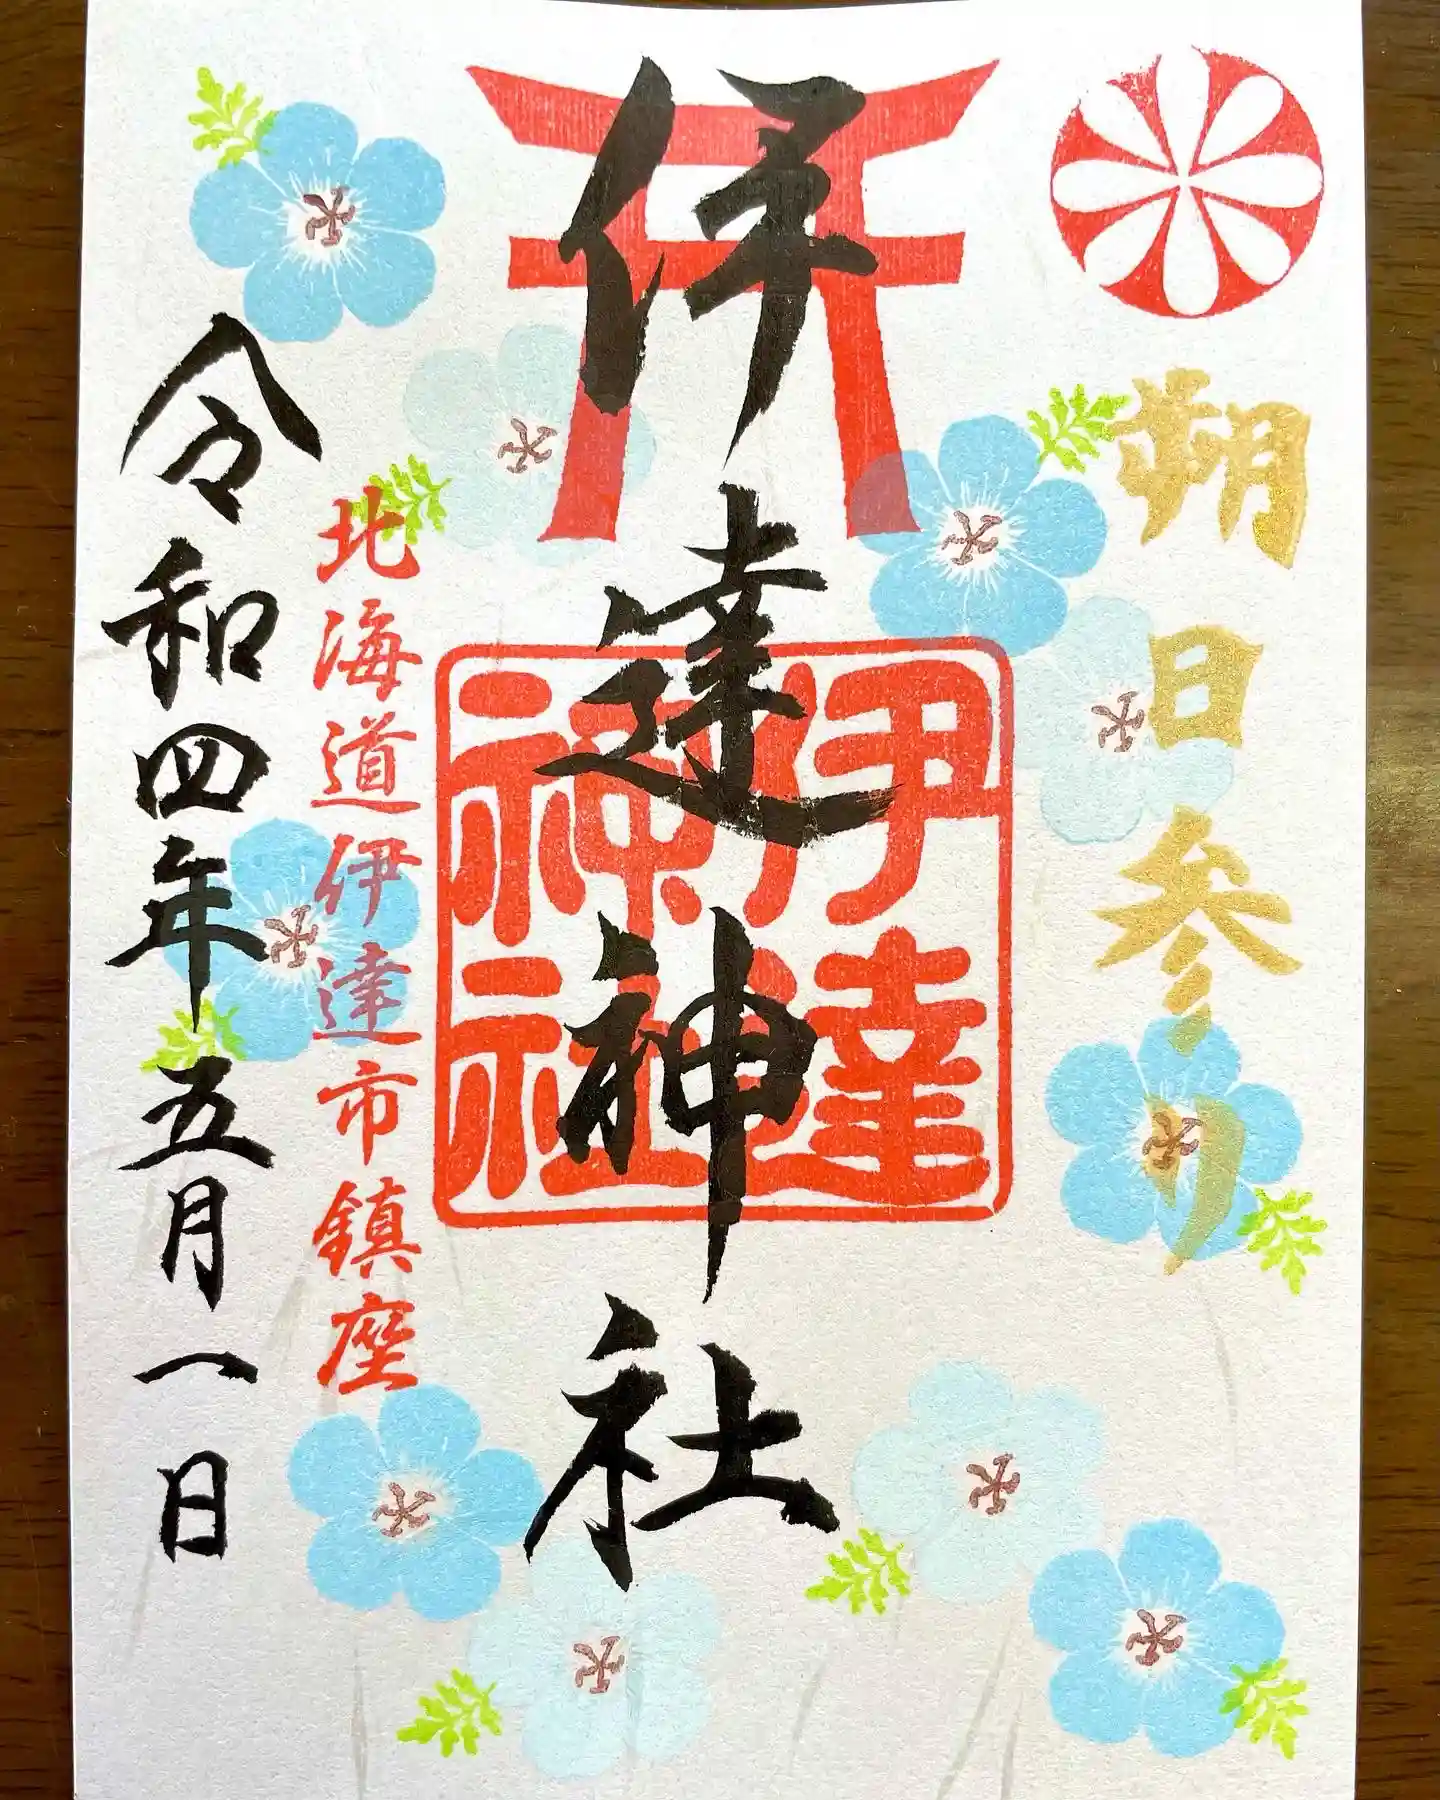 朔日参り
伊達神社
伊達神社
北海道伊達市鎮座
令和四年五月一日